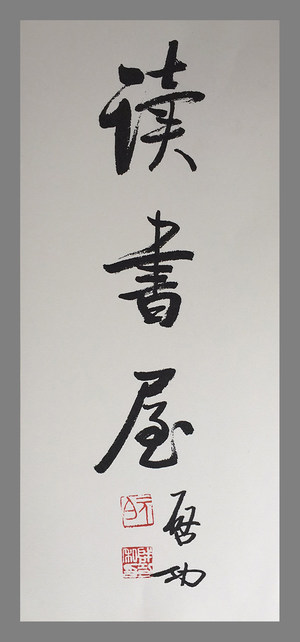 读書屋
啓功